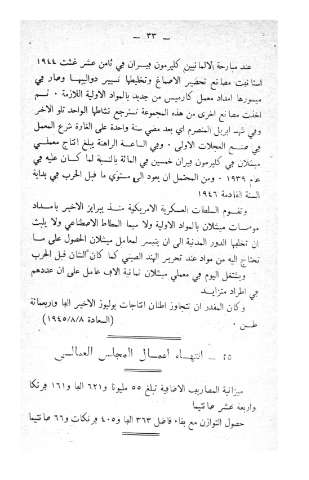 — ٣٣ —
عند مبارحة الالمانيين كليرمون فيران في ثامن عشر غشت ١٩٤٤
استأنفت مصانع تحضير الاصماغ وتخليطها تسيير دواليبها وصار في
ميسورها امداد معمل كارميس من جديد بالمواد الاولية اللازمة ٠ ثم
اخذت مصانع اخرى من هذه المجموعة تسترجع نشاطها الواحد تلو الآخر
وفي شهر ابريل المنصرم اي بعد مضي سنة واحدة على الغارة شرع المعمل
في صنع العجلات الاولى ٠ وفي الساعة الراهنة يبلغ انتاج معملي
ميشلان في كليرمون فيران خمسين في المائة بالنسبة لما كان عليه في
عام ١٩٣٩ ٠ ومن المحتمل ان يعود الى مستوى ما قبل الحرب في بداية
السنة القادمة ١٩٤٦
وتقوم السلطات العسكرية الامريكية منذ يبراير الاخير بامداد
موسسات ميشلان بالمواد الاولية ولا سيما المطاط الاصطناعي ولا يلبث
ان تخلفها الدور المدنية الى ان يتيسر لمعامل ميشلان الحصول على ما
تحتاج اليه من مواد عند تحرير الهند الصيني كما كان الشأن قبل الحرب
ويشتغل اليوم في معملي ميشلان ثمانية آلاف عامل على ان عددهم
في اطراد متزايد
وكان المقدر ان تتجاوز اطنان انتاجات يوليوز الاخير الفا واربعمائة
طن ٠ (السعادة ١٩٤٥/٨/٨)
٤٥ — انتهاء اعمال المجلس العمالي
ميزانية المصاريف الاضافية تبلغ ٥٥ مليونا و٦٢١ الفا و١٦١ فرنكا
واربعة عشر صانتيما
حصول التوازن مع بقاء فاضل ٣٦٣ الفا و٤٠٥ فرنكات و٦٦ صانتيما